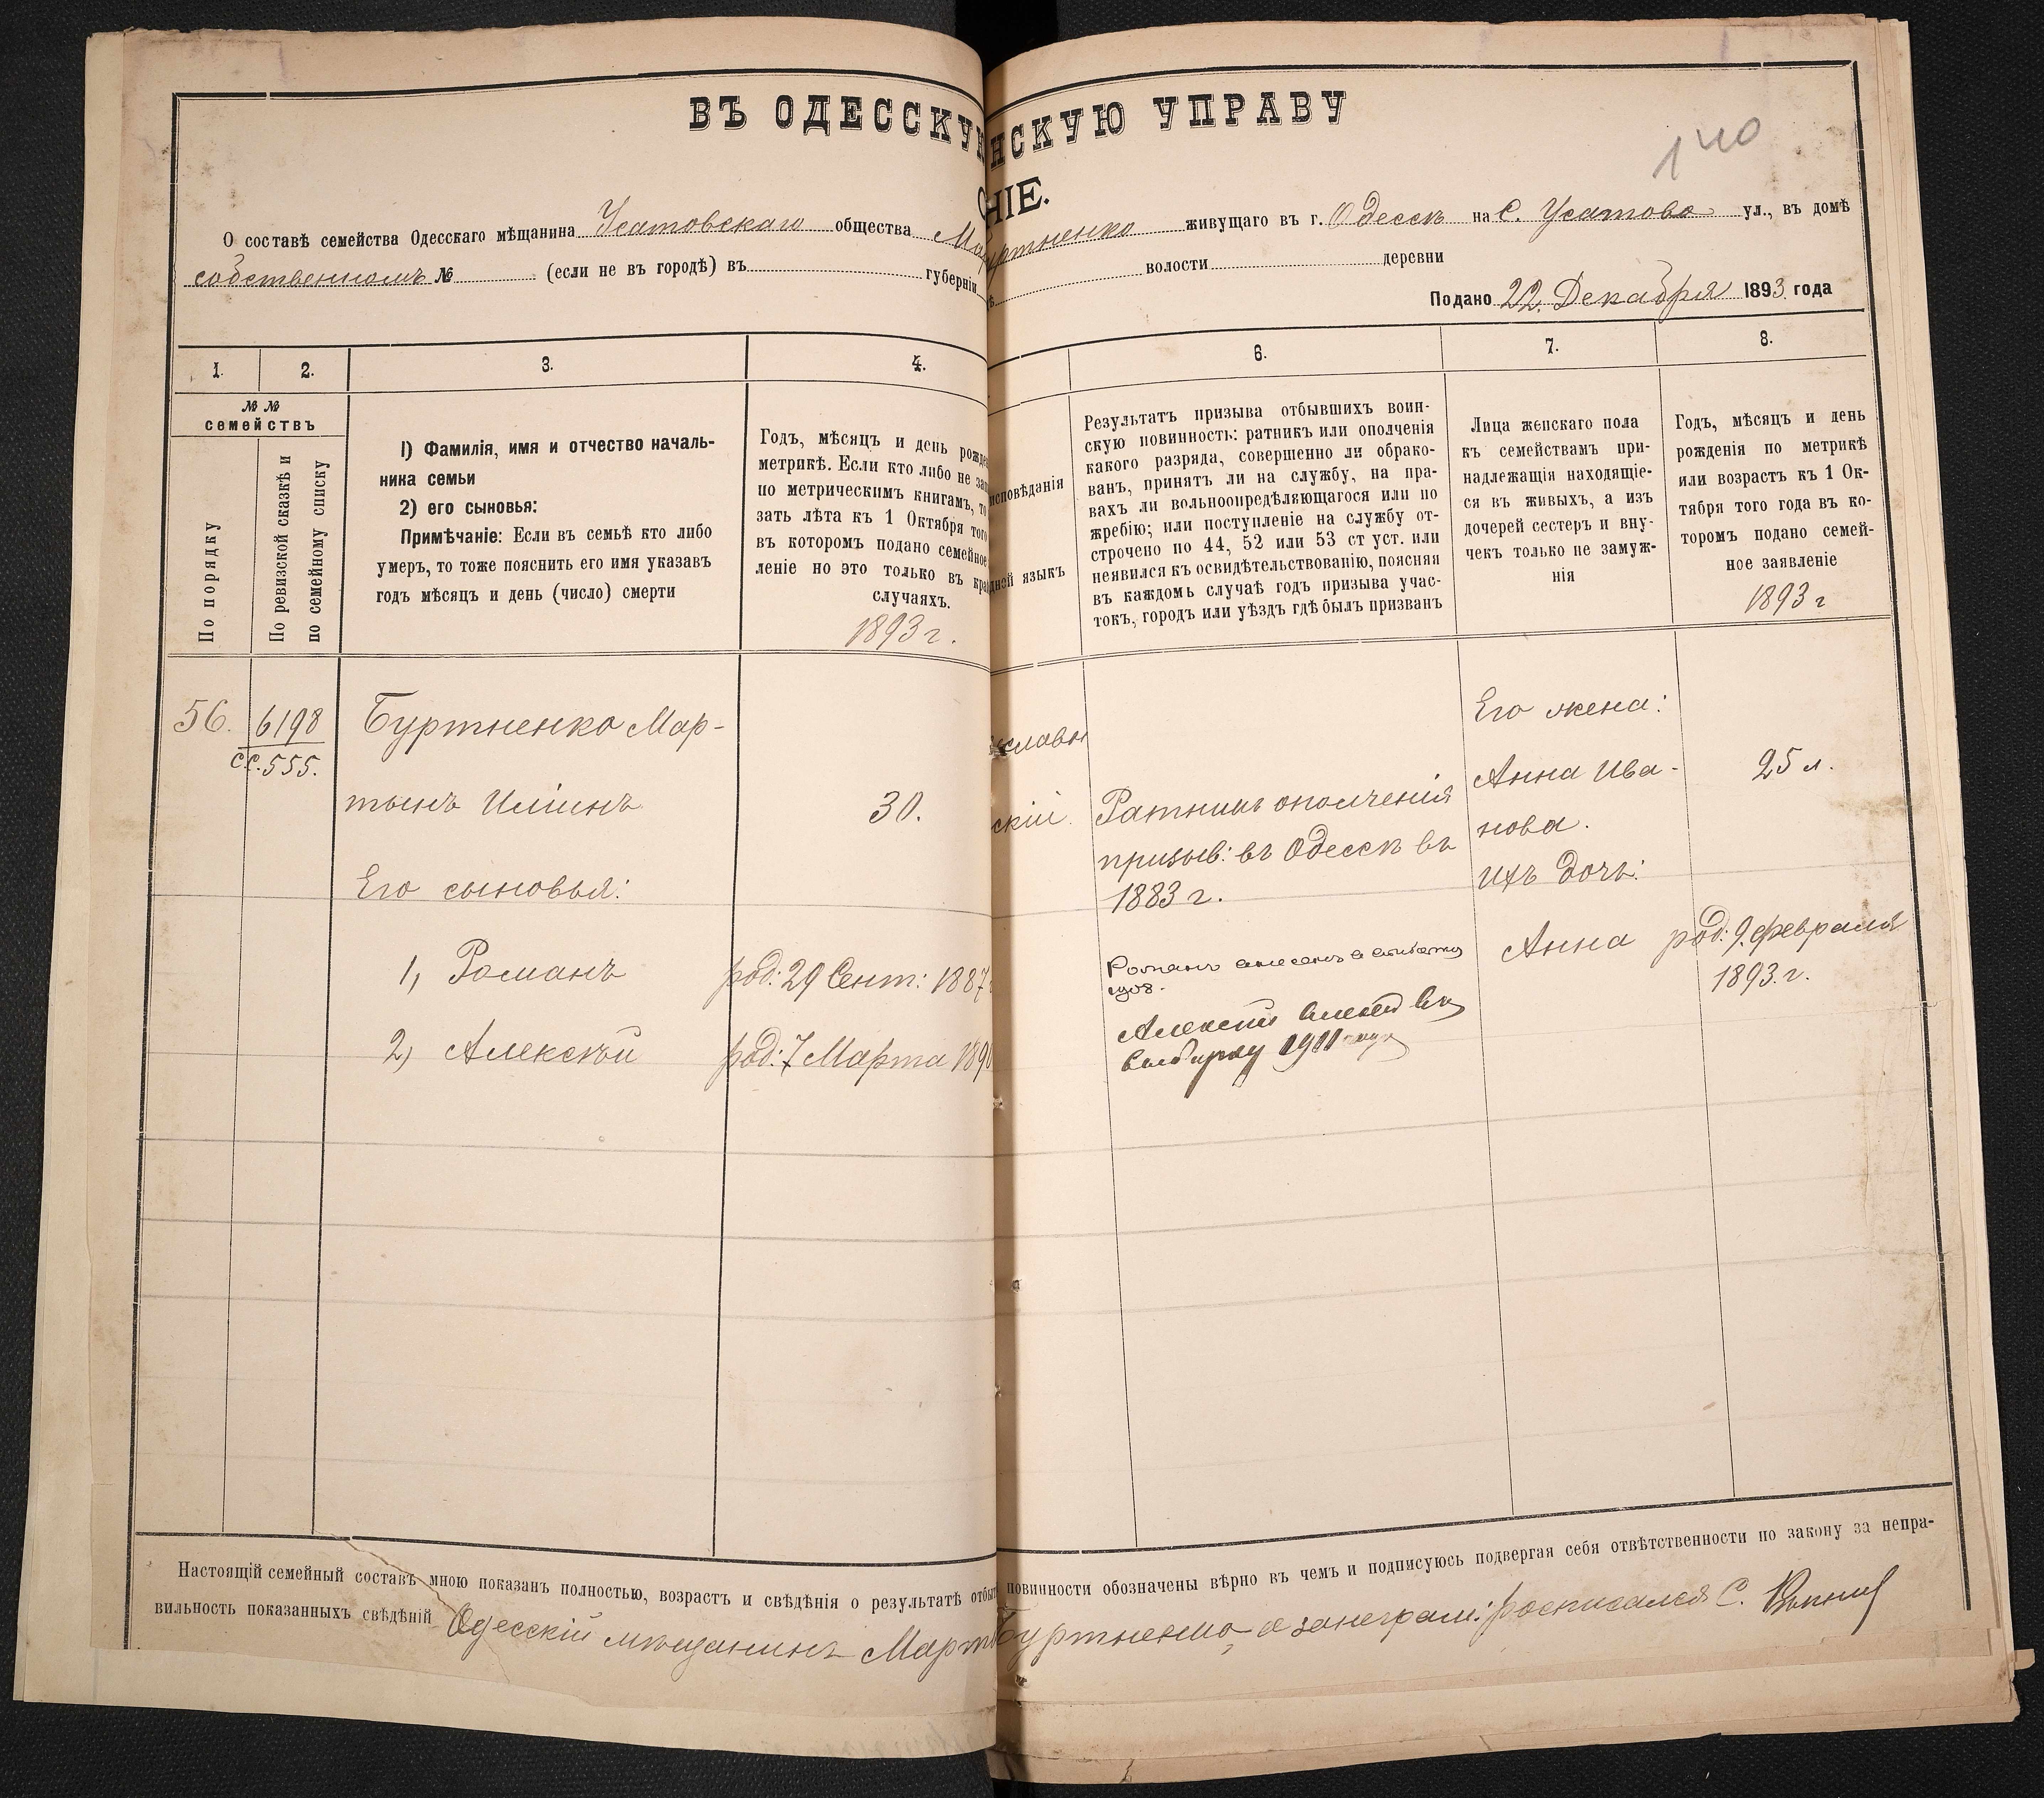 ВЪ ОДЕССКУЮ НСКУЮ УПРАВУ
140
НІЕ.
О составѣ семейства Одесскаго мѣщанина Усатовскаго общества Мар Буртненко живущаго въ г. Одессѣ на С. Усатово ул., въ домѣ
собственномъ № (если не въ городѣ) въ губерніи волости деревни
Подано 22 Декабря 1893 года
1. 2. 3. 4. 6. 7. 8.
№ №
семействъ
По порядку
По ревизской сказкѣ и
по семейному списку
1) Фамилія, имя и отчество началь-
ника семьи
2) его сыновья:
Примѣчаніе: Если въ семьѣ кто либо
умеръ, то тоже пояснить его имя указавъ
годъ мѣсяцъ и день (число) смерти
Годъ, мѣсяцъ и день рожде
метрикѣ. Если кто либо не зап
по метрическимъ книгамъ, то
зать лѣта къ 1 Октября того
въ которомъ подано семейное
леніе но это только въ кра
случаяхъ.
1893 г.
исповѣданія
дной языкъ
Результатъ призыва отбывшихъ воин-
скую повинность: ратникъ или ополченія
какого разряда, совершенно ли обрако-
ванъ, принятъ ли на службу, на пра-
вахъ ли вольноопредѣляющагося или по
жребію; или поступленіе на службу от-
строчено по 44, 52 или 53 ст уст. или
неявился къ освидѣтельствованію, поясняя
въ каждомъ случаѣ годъ призыва учас-
токъ, городъ или уѣздъ гдѣ былъ призванъ
Лица женскаго пола
къ семействамъ при-
надлежащія находящіе-
ся въ живыхъ, а изъ
дочерей сестеръ и вну-
чекъ только не замуж-
нія
Годъ, мѣсяцъ и день
рожденія по метрикѣ
или возрастъ къ 1 Ок-
тября того года въ ко-
торомъ подано семей-
ное заявленіе
1893 г
56. 6198
с.с. 555.
Буртненко Мар-
тынъ Ильинъ
30.
славн
скій.
Ратникъ ополченія
призыв: въ Одессѣ въ
1883 г.
Его жена:
Анна Ива-
нова.
25 л.
Ихъ дочь:
Анна род: 9. февраля
1893. г.
Его сыновья:
1, Романъ род: 29 Сент: 1887
2, Алексѣй род: 7 Марта 1890
Романъ внесенъ в
1908.
Алексѣй
1911
Настоящій семейный составъ мною показанъ полностью, возрастъ и свѣдѣнія о результатѣ отбыт повинности обозначены вѣрно въ чемъ и подписуюсь подвергая себя отвѣтственности по закону за непра-
вильность показанныхъ свѣдѣній Одесскій мѣщанинъ Март Буртненко, а занеграм: росписался С.